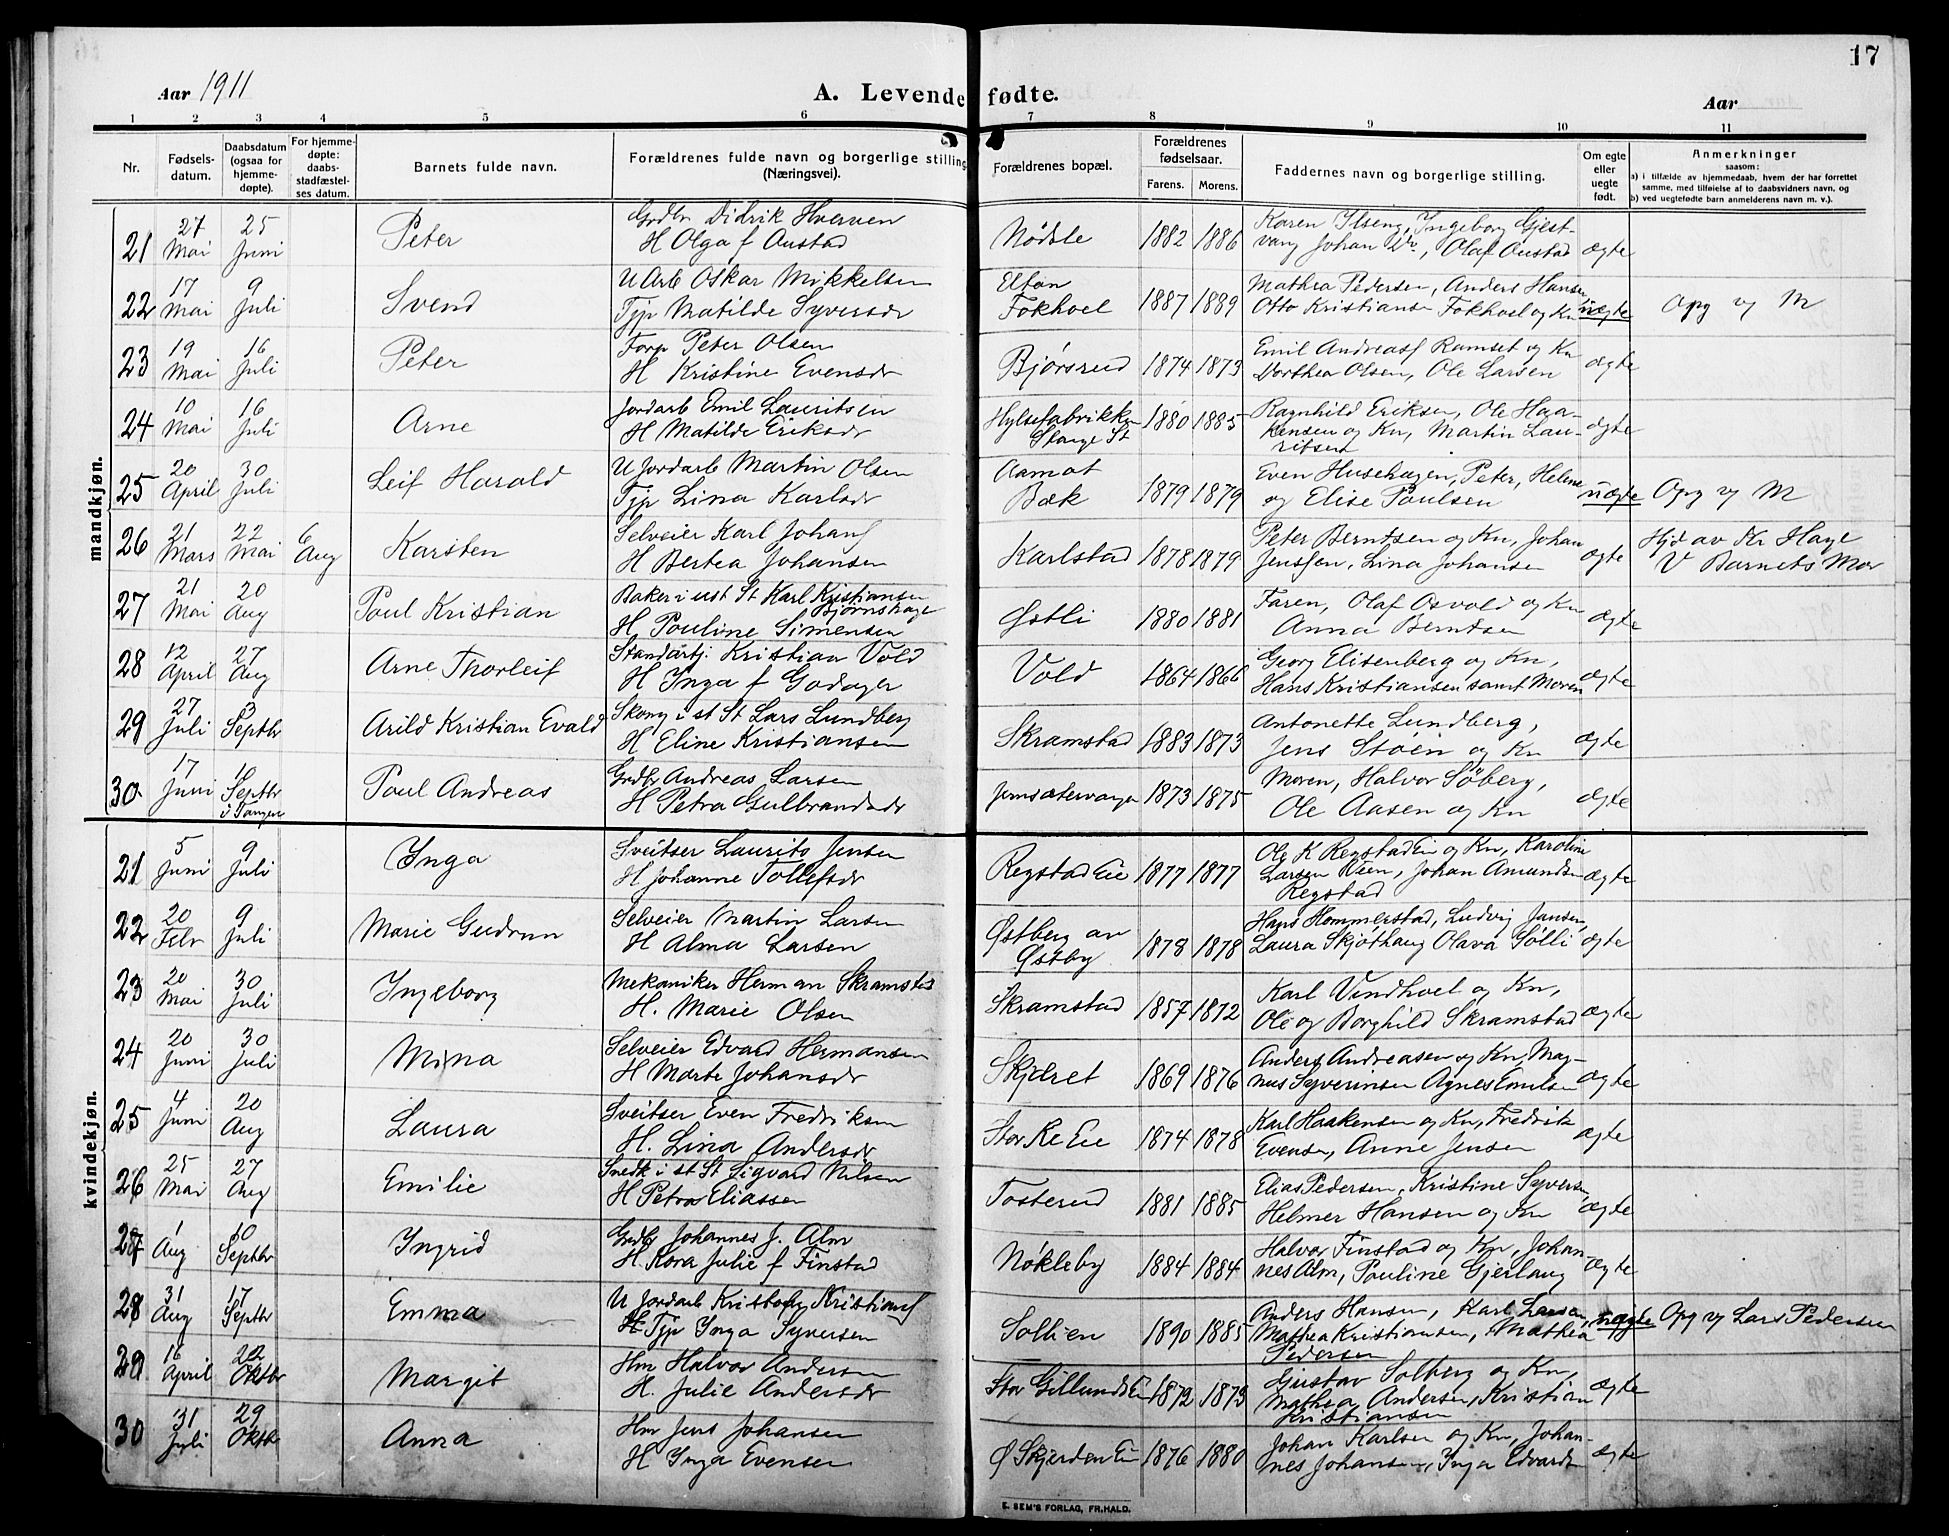 17
Aar 1911
A. Levende fødte.
Aar
1 2 3 4 5 6 7 8 9 10 11
Nr.
Fødsels-
datum.
Daabsdatum
(ogsaa for
hjemme-
døpte).
For hjemme-
døpte:
daabs-
stadfæstel-
ses datum.
Barnets fulde navn.
Forældrenes fulde navn og borgerlige stilling
(Næringsvei).
Forældrenes bopæl.
Forældrenes
fødselsaar.
Farens. Morens.
Faddernes navn og borgerlige stilling.
Om egte
eller
uegte
født.
Anmerkninger
saasom:
a) i tilfælde av hjemmedaab, hvem der har forrettet
samme, med tilføielse af to daabsvidners navn, og
b) ved uegtefødte barn anmelderens navn m. v.).
mandkjøn.
21 27 Mai 25 Juni Peter
Grdbr Didrik Hverven
H Olga f Austad
Nödsle 1882 1886
Karen Ilseng, Ingeborg Gjest-
vang Johan Do, Olaf Austad
ægte
22 17 Mai 9 Juli Svend
U Arb Oskar Mikkelsen
Typ Matilde Syversdr
Elton
Fokhoel
1887 1889
Mathea Pedersen, Anders Hansen
Otto Kristiansen Fokhoel og Kn
uægte
Opg v M
23 19 Mai 16 Juli Peter
Forp Peter Olsen
H Kristine Evensdr
Bjørsrud 1874 1873
Emil Andreasf Ramset og Kn
Dorthea Olsen, Ole Larsen
ægte
24 10 Mai 16 Juli Arne
Jordarb Emil Lauritsen
H Matilde Eriksdr
Hylsefabrikken
Stange St
1880 1885
Ragnhild Eriksen, Ole Haa-
kensen og Kn, Martin Lau-
ritsen
ægte
25 20 April 30 Juli Leif Harald
U Jordarb Martin Olsen
Typ Lina Karlsdr
Aamot
Bæk
1879 1879
Even Husehagen, Peter, Helene
og Elise Paulsen
uægte
Opg v M
26 21 Mars 22 Mai 6 Aug Karsten
Selveier Karl Johansf
H Bertea Johansen
Karlstad 1878 1879
Peter Berntsen og Kn, Johan
Jenssen, Lina Johansen
ægte
Hjd av Kr Hage
V Barnets Mor
27 21 Mai 20 Aug Poul Kristian
Baker i ust St Karl Kristiansen
Bjørnshage
H Pouline Simensen
Østli 1880 1881
Faren, Olaf Osvold og Kn
Anna Berntsen
ægte
28 12 April 27 Aug Arne Thorleif
Standartj. Kristian Vold
H Inga f Godager
Vold 1864 1866
Georg Elisenberg og Kn,
Hans Kristiansen samt Moren
ægte
29 27 Juli 3 Septbr Arild Kristian Evald
Skom i st St Lars Lundberg
H Eline Kristiansen
Skramstad 1883 1873
Antonette Lundberg,
Jens Støen og Kn
ægte
30 17 Juni 1 Septbr
i Tangen
Paul Andreas
Grdbr Andreas Larsen
H Petra Gulbrandsdr
Jemsætervangen 1873 1875
Moren, Halvor Söberg,
Ole Aasen og Kn
ægte
kvindekjøn.
21 5 Juni 9 Juli Inga
Sveitser Laurits Jensen
H Johanne Tollefsdr
Regstad Eie 1877 1877
Ole K RegstadEie og Kn, Karoline
Larsen Wien, Johan Amundsen
Regstad
ægte
22 20 Febr 9 Juli Marie Gudrun
Selveier Martin Larsen
H Alma Larsen
Østberg av
Østby
1878 1878
Hans Hommerstad, Ludvig Jansen,
Laura Skjøthaug Olava Sølli
ægte
23 20 Mai 30 Juli Ingeborg
Mekaniker Herman Skramstad
H. Marie Olsen
Skramstad 1857 1872
Karl Vindhoel og Kn,
Ole og Borghild Skramstad
ægte
24 20 Juni 30 Juli Mina
Selveier Edvard Hermansen
H Marte Johansdr
Skjæret 1869 1876
Anders Andreasen og Kn, Mag-
nus Syverinsen Agnes Emilsen
ægte
25 4 Juni 20 Aug Laura
Sveitser Even Fredriksen
H. Lina Andersdr
Stor Re Eie 1874 1878
Karl Haakensen og Kn, Fredrik
Evensen, Anne Jensen
ægte
26 25 Mai 27 Aug Emilie
Snedk i st St Sigvard Nilsen
H Petra Eliassen
Tosterud 1881 1885
Elias Pedersen, Kristine Syversen
Helmer Hansen og Kn
ægte
27 1 Aug 10 Septbr Ingrid
Grdbr Johannes J. Alm
H. Kora Julie f Finstad
Nökleby 1884 1884
Halvor Finstad og Kn, Johan-
nes Alm, Pauline Gjerlaug
ægte
28 31 Aug 17 Septbr Emma
U Jordarb Kristoffer Kristiansf
Typ Inga Syversen
Sollien 1890 1885
Anders Hansen, Karl Larsen,
Mathea Kristiansen, Mathea
Pedersen
uægte
Opg v Lars Pedersen
29 16 April 22 Oktbr Margit
Hm Halvor Andersen
H. Julie Andersdr
Stor Gillund Eie 1872 1873
Gustav Solberg og Kn,
Mathea Andersen, Kristian
Kristiansen
ægte
30 31 Juli 29 Oktbr Anna
Hm Jens Johansen
H Inga Evensen
Ø Skjerden Eie 1876 1880
Johan Karlsen og Kn, Johan-
nes Johansen, Inga Edvardsen
ægte
E. SEM'S FORLAG, FR.HALD.